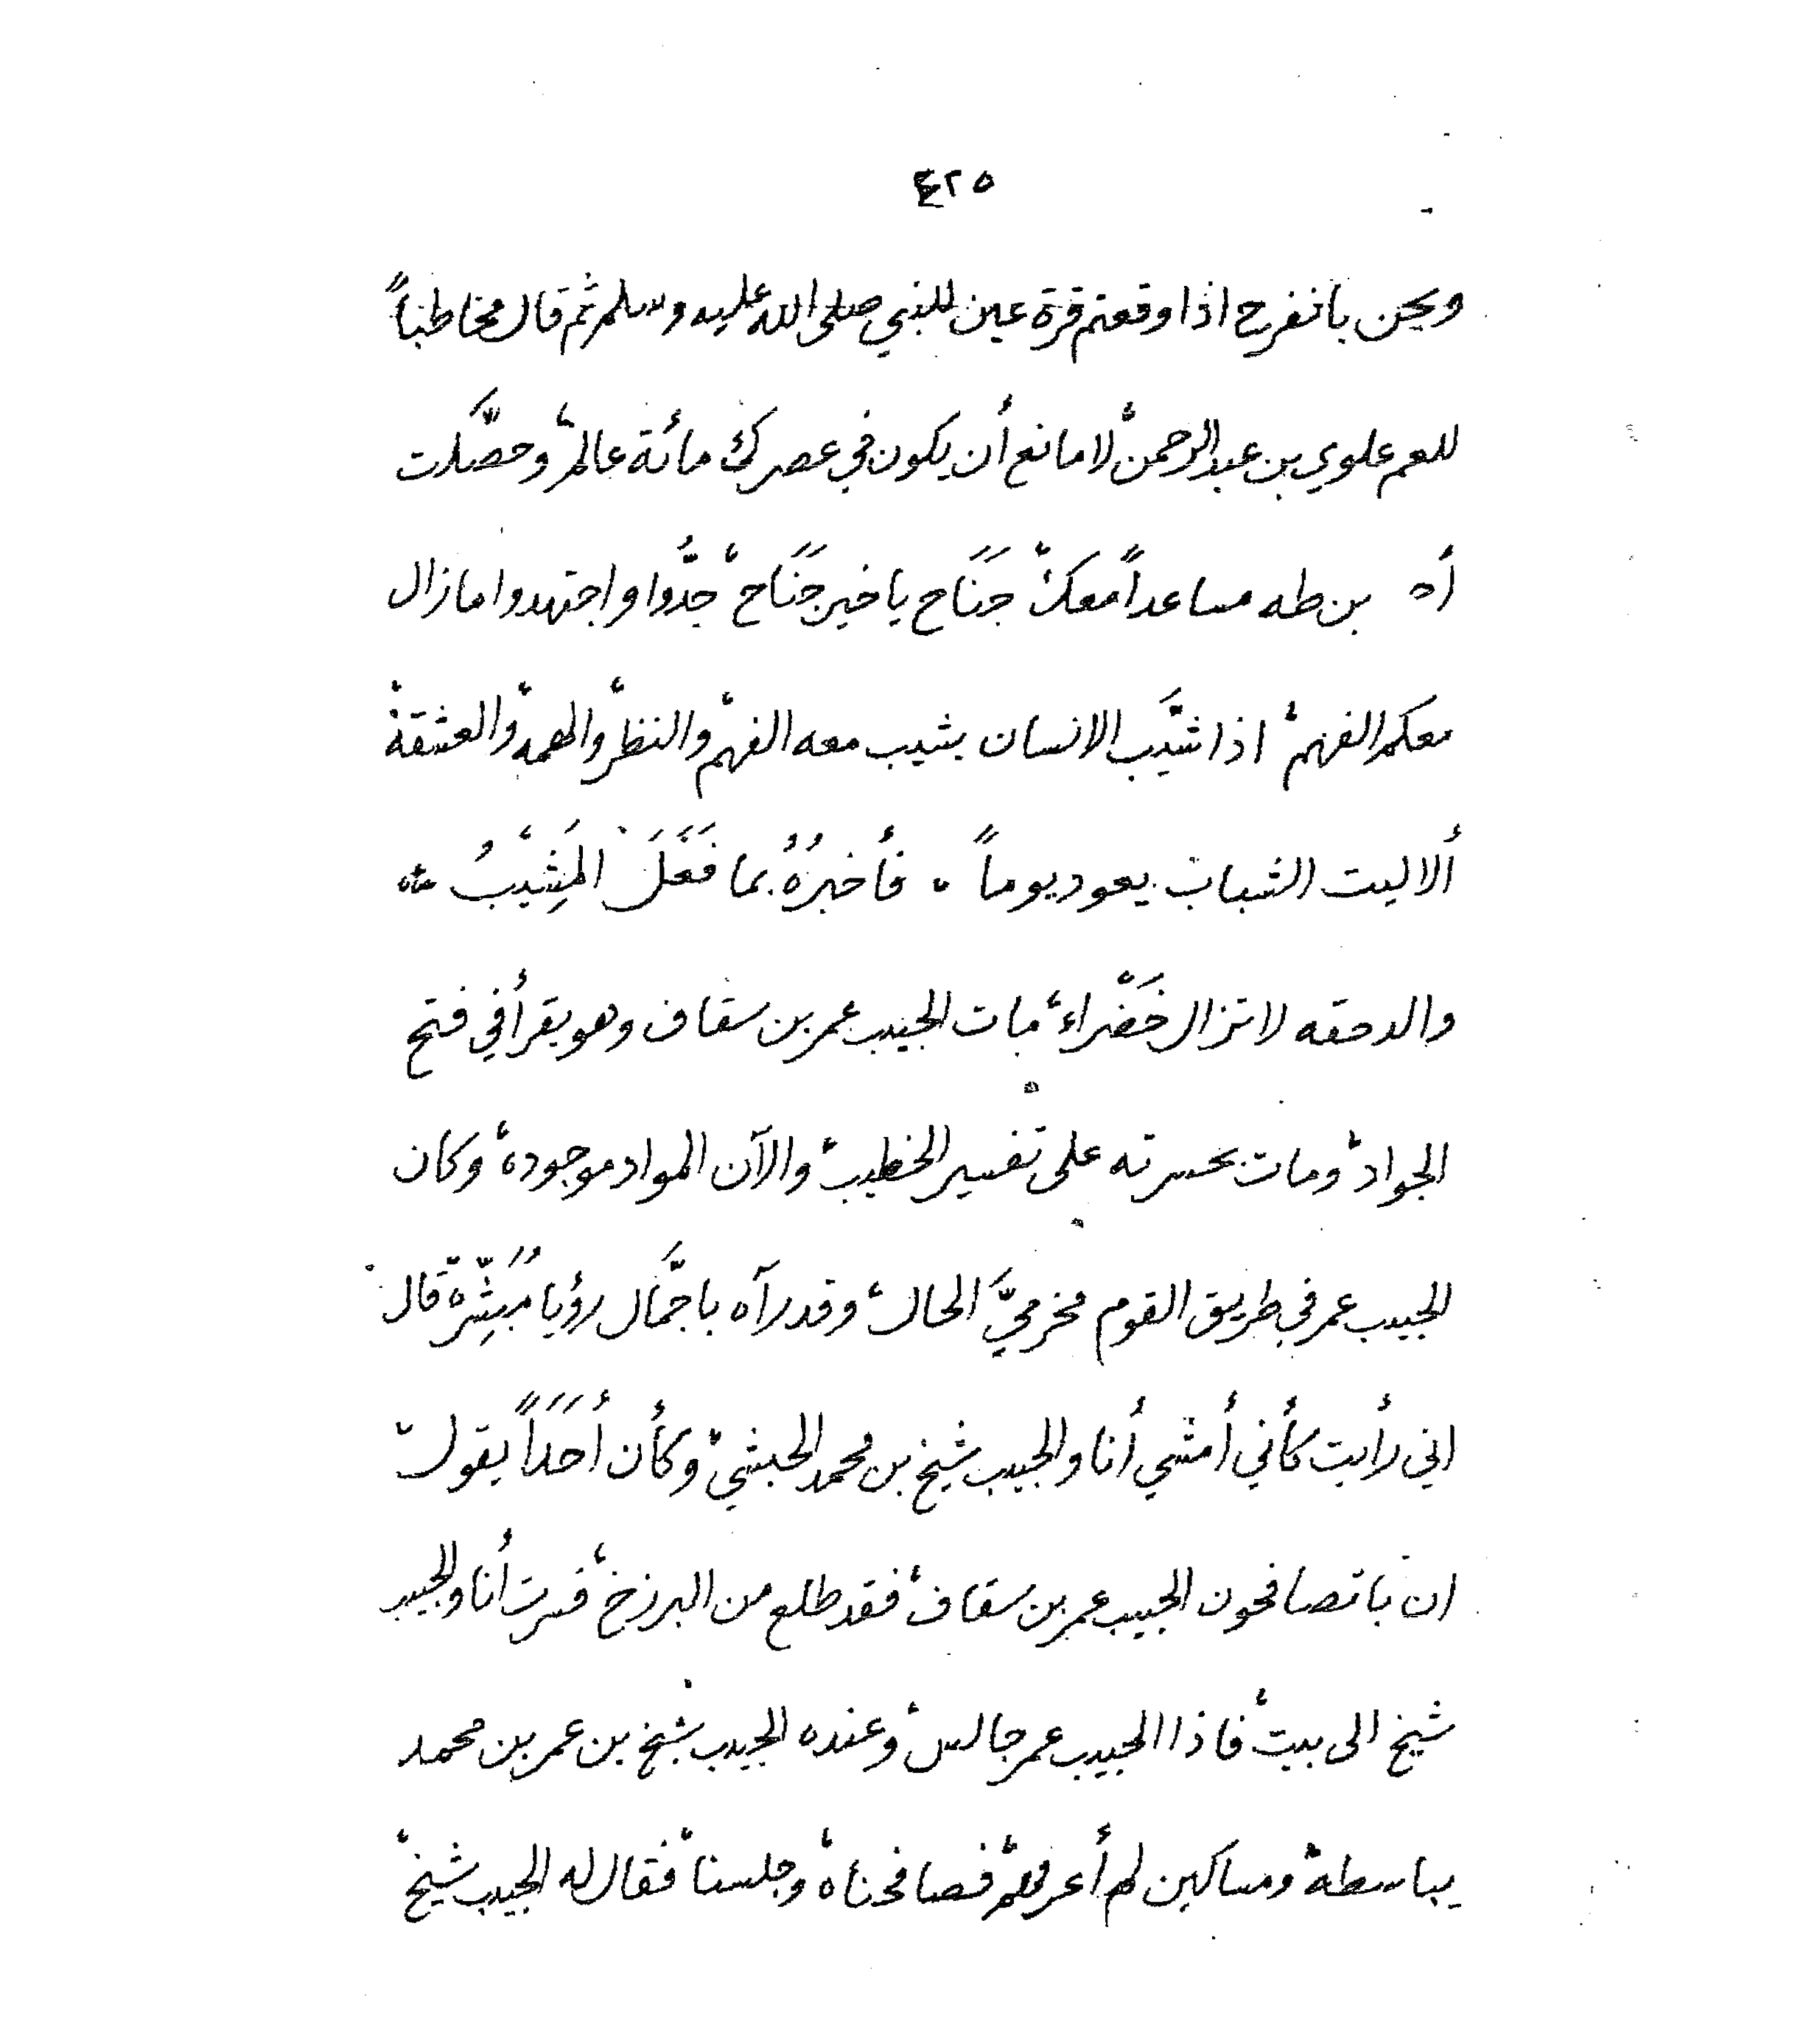 ٤٢٥
ونحن بانفرح اذا وقعتم قرة عين للنبي صلى الله عليه وسلم ثم قال مخاطباً
للعم علوي بن عبدالرحمن، لامانع أن يكون في عصرك مائة عالم، وحصَّلت
أه بن طه مساعداً معك، جَنَاح يا خير جَنَاح، جِدُّوا واجتهدوا مازال
معكم الفهم، اذا شيَّب الانسان يشيب معه الفهم، والنظر، والهمة، والعشقة،
ألا ليت الشباب يعود يوماً ، فأُخبرُهُ بما فَعَلَ المَشِيْبُ
والدحقه لا تزال خَضْراء، مات الحبيب عمر بن سقاف وهو يقرأ في فتح
الجواد، ومات بحسرته على تفسير الخطيب، والآن المواد موجوده، وكان
الحبيب عمر في طريق القوم مخرميَّ الحال، وقد رآه باجمَّال رؤيا مُبَشِّرة، قال
اني رأيت كأني أمشي أنا والحبيب شيخ بن محمد الحبشي، وكأن أحَدَاً يقول،
ان باتصافحون الحبيب عمر بن سقاف، فقد طلع من البرزخ، فسرت أنا والحبيب
شيخ الى بيت، فاذا الحبيب عمر جالس، وعنده الحبيب شيخ بن عمر بن محمد
يباسطه، ومساكين لم أعرفهم، فصافحناه، وجلسنا، فقال له الحبيب شيخ،